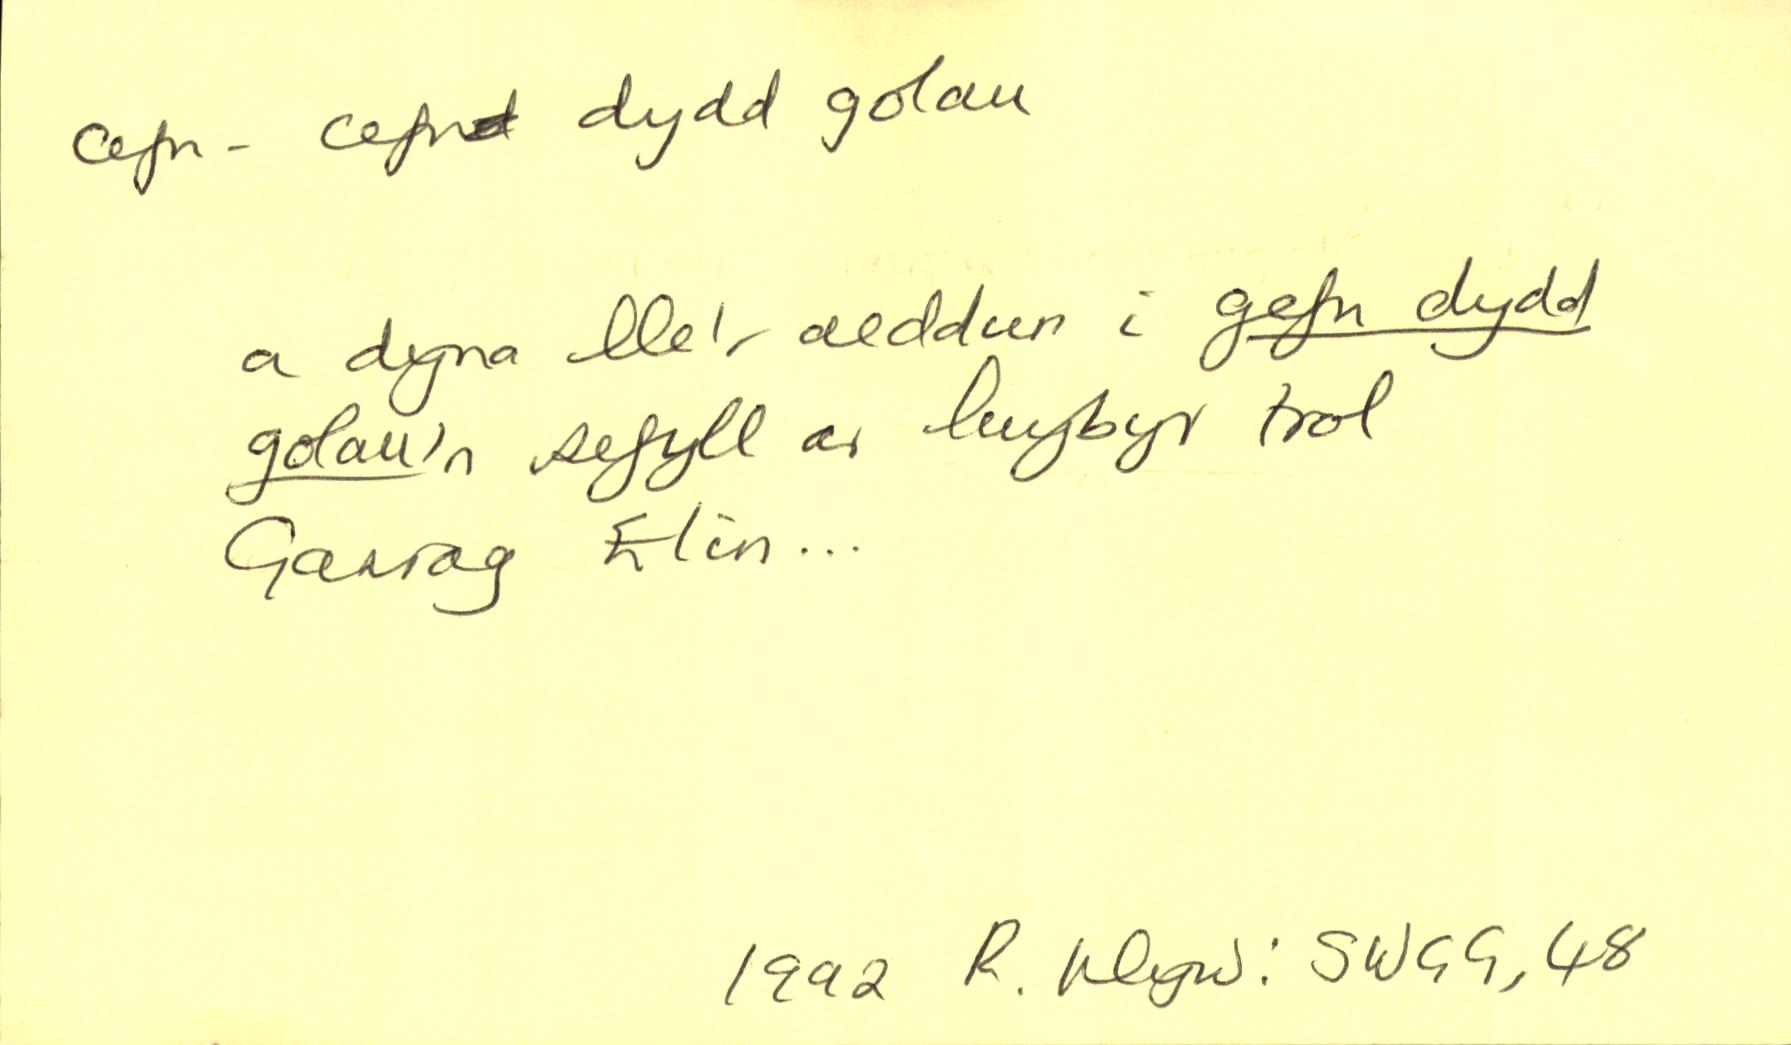 cefn - cefn dydd golau
a dyna lle'r aeddun i gefn dydd
golau'n sefyll ar lwybyr trol
Garrag Elin...
1992 R. Wlyw: SWGG, 48